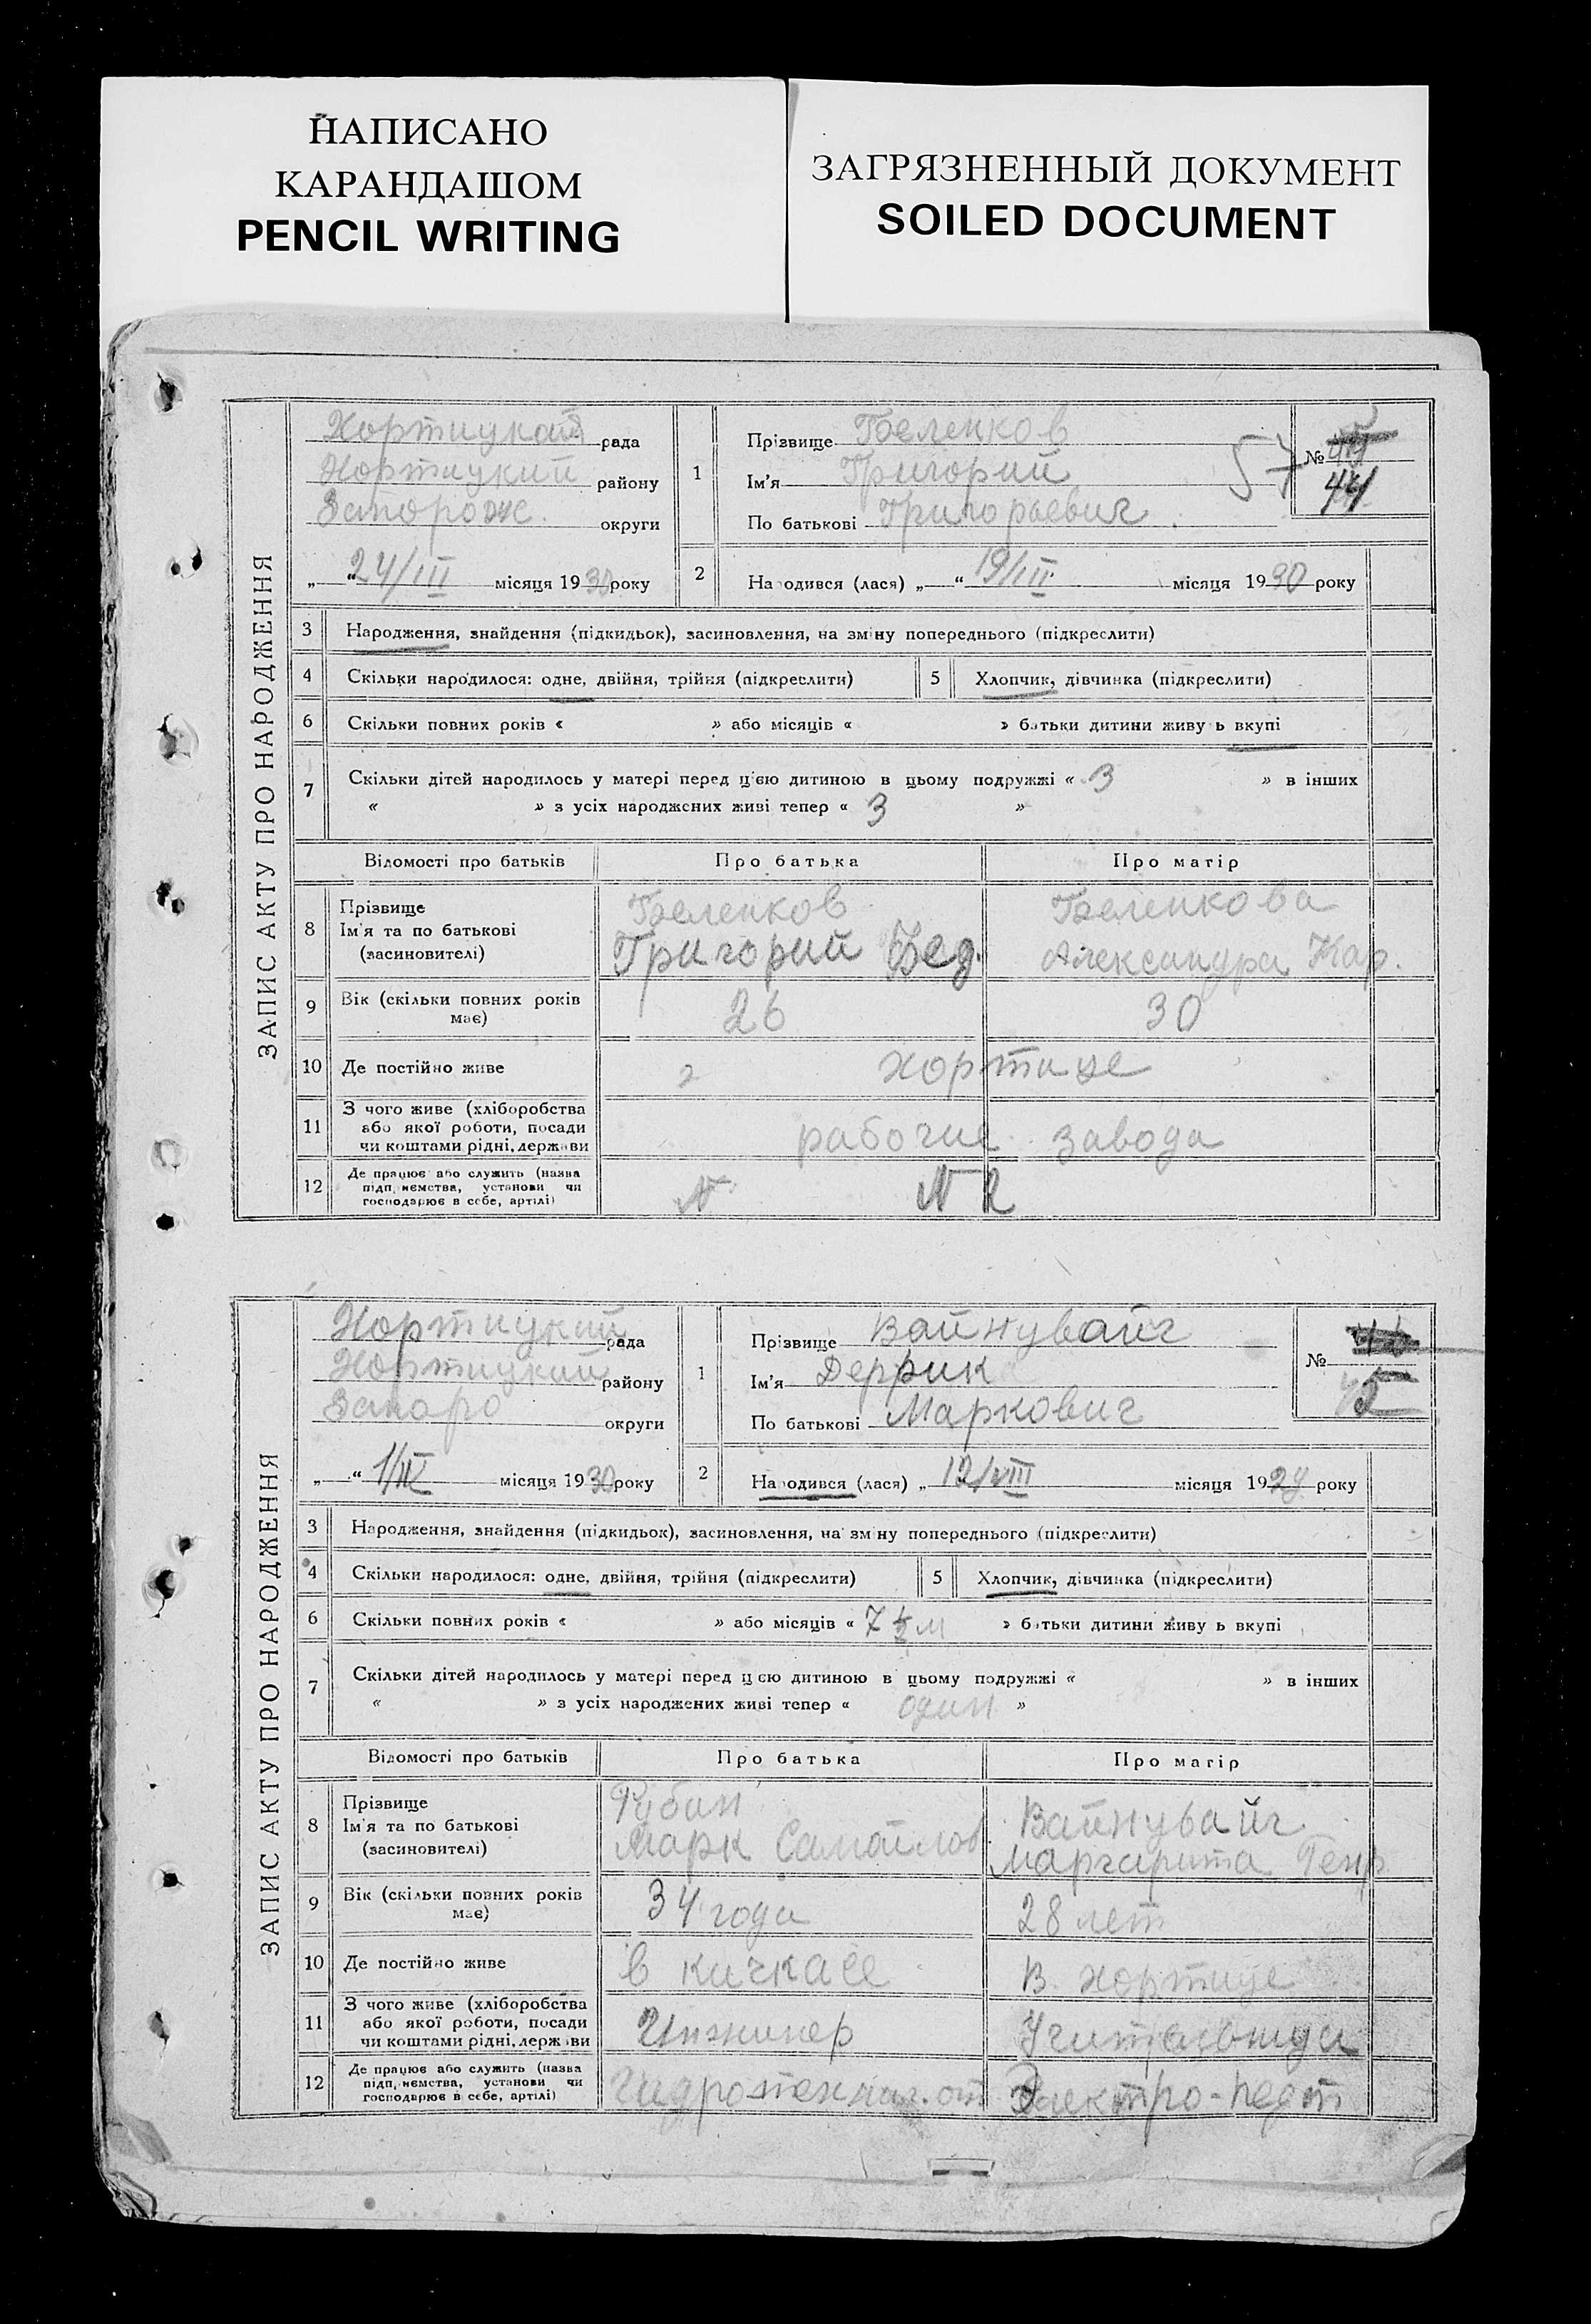 НАПИСАНО
КАРАНДАШОМ
PENCIL WRITING
ЗАГРЯЗНЕННЫЙ ДОКУМЕНТ
SOILED DOCUMENT
ЗАПИС АКТУ ПРО НАРОДЖЕННЯ
Хортицкая рада
Хортицкий району
Запорож. округи
„ “ 24/III місяця 1930 року
1 Прізвище Беленков
Ім'я Григорий
По батькові Григорьевич
57
№ 44
2 Народився (лася) „ “ 19/III місяця 1930 року
3 Народження, знайдення (підкидьок), засиновлення, на зміну попереднього (підкреслити)
4 Скільки народилося: одне, двійня, трійня (підкреслити) 5 Хлопчик, дівчинка (підкреслити)
6 Скільки повних років « » або місяців « » батьки дитини живуть вкупі
7 Скільки дітей народилось у матері перед цією дитиною в цьому подружжі « 3 » в інших
« » з усіх народжених живі тепер « 3 »
Відомості про батьків Про батька Про матір
8 Прізвище Беленков Беленкова
Ім'я та по батькові Григорий Фед. Александра Мар.
(засиновителі)
9 Вік (скільки повних років має) 26 30
10 Де постійно живе Хортице
11 З чого живе (хліборобства
або якої роботи, посади рабочие завода
чи коштами рідні, держави
12 Де працює або служить (назва
підприємства, установи чи N 2
господарює в себе, артілі)
ЗАПИС АКТУ ПРО НАРОДЖЕННЯ
Хортицкий рада
Хортицкий району
Запоро округи
„ “ 1/IV місяця 1930 року
1 Прізвище Вайнувайг
Ім'я Деррик
По батькові Маркович
№ 45
2 Народився (лася) „ 12/VIII місяця 1929 року
3 Народження, знайдення (підкидьок), засиновлення, на зміну попереднього (підкреслити)
4 Скільки народилося: одне, двійня, трійня (підкреслити) 5 Хлопчик, дівчинка (підкреслити)
6 Скільки повних років « » або місяців « 7 1/2 м » батьки дитини живуть вкупі
7 Скільки дітей народилось у матері перед цією дитиною в цьому подружжі « » в інших
« » з усіх народжених живі тепер « один »
Відомості про батьків Про батька Про матір
8 Прізвище Рубин Вайнувайг
Ім'я та по батькові Марк Самойлов. Маргарита Генр
(засиновителі)
9 Вік (скільки повних років має) 34 года 28 лет
10 Де постійно живе в кичкасе В. Хортице
11 З чого живе (хліборобства
або якої роботи, посади Инженер Учительница
чи коштами рідні, держави
12 Де працює або служить (назва
підприємства, установи чи Гидротехнич. от Электро-педт
господарює в себе, артілі)